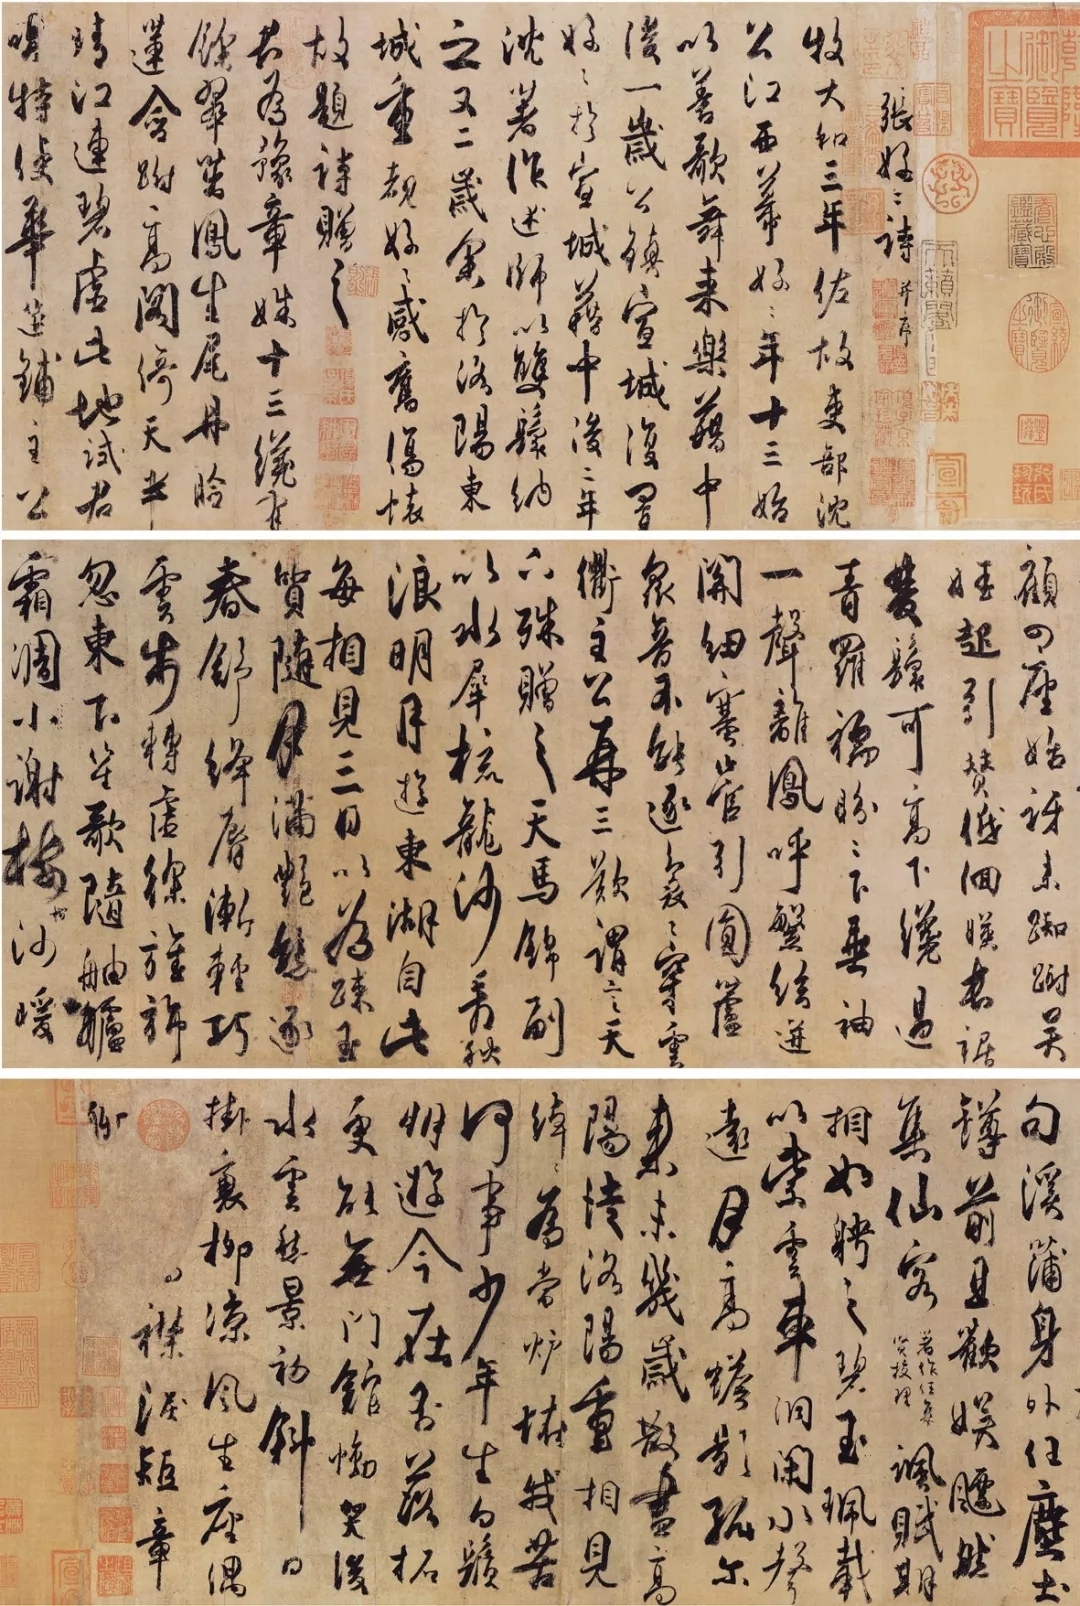 乾隆御覽之寶
養心殿鑑藏寶
宣統御覽之寶
天籟閣
張好〻詩 并序
牧大和三年佐故吏部沈
公江西幕好〻年十三始
以善歌舞来樂籍中
後一歲公鎮宣城復置
好〻於宣城籍中後二年
沈著作述師以雙鬟納
之又二歲余於洛陽東
城重覩好〻感舊傷懷
故題詩贈之
君為豫章姝十三纔有
餘翠茁鳳生尾丹臉
蓮含跗高閣倚天半
晴江連碧虛此地試君
唱特使華筵鋪主公
顧四座始訝来踟蹰吳
娃起引贊低佪暎長裾
雙鬟可高下纔過
青羅襦盼〻下垂袖
一聲離鳳呼繁絃迸
關紐塞管引圓蘆
衆音不能逐裊〻穿雲
衢主公再三歎謂言天
下殊贈之天馬錦副
以水犀梳龍沙看秋
浪明月遊東湖自此
每相見三日以為踈玉
質隨月滿艶態逐
春舒絳脣漸輕巧
雲步轉虛徐旌旆
忽東下笙歌隨舳艫
霜凋小謝樹沙暖
句溪蒲身外任塵土
罇前且歡娛飄然
集仙客 著作任集賢校理 諷賦期
相如聘之碧玉珮載
以紫雲車洞閉水聲
遠月高蟾影孤尔
来未幾歲散盡高
陽徒洛陽重相見
綽〻為當壚怪我苦
何事少年生白鬚
朋遊今在否落拓
更能無門舘慟哭後
水雲愁景初斜日
掛衰柳涼風生座隅
襟淚短章
聊